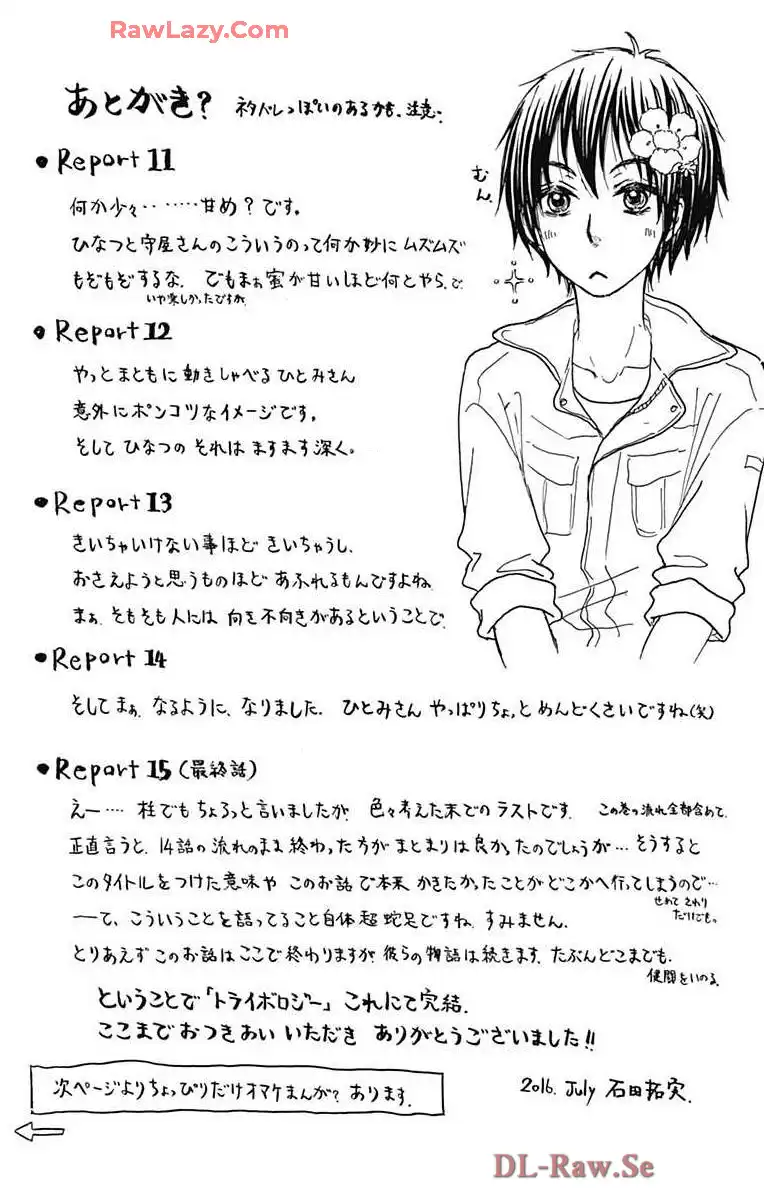 RawLazy.Com
あとがき? ネタバレっぽいのあるかも、注意。
• Report 11
むん。
何か少々‥‥‥‥甘め?です。
ひなつと守屋さんのこういうのって何か妙にムズムズ
もぞもぞするな。でもまぁ蜜が甘いほど何とやら、で
いや楽しかったですが。
• Report 12
やっとまともに動きしゃべるひとみさん
意外にポンコツなイメージです。
そしてひなつのそれはますます深く。
• Report 13
きいちゃいけない事ほどきいちゃうし、
おさえようと思うものほどあふれるもんですよね
まぁ、そもそも人には向き不向きがあるということで、
• Report 14
そしてまぁ、なるように、なりました。ひとみさんやっぱりちょっとめんどくさいですね(笑)
• Report 15 (最終話)
えー‥‥柱でもちょろっと言いましたが、色々考えた末でのラストです。この巻の流れ全部含めて。
正直言うと、14話の流れのまま終わった方がまとまりは良かったのでしょうが…そうすると
このタイトルをつけた意味やこのお話で本来かきたかったことがどこかへ行ってしまうので…
せめてさわり
だけでも。
――て、こういうことを語ってること自体超蛇足ですね、すみません。
とりあえずこのお話はここで終わりますが、彼らの物語は続きます。たぶんどこまでも。
健闘をいのる。
ということで「トライボロジー」これにて完結。
ここまでおつきあいいただきありがとうございました!!
次ページよりちょっぴりだけオマケまんが?あります。
2016. July 石田拓実.
DL-Raw.Se